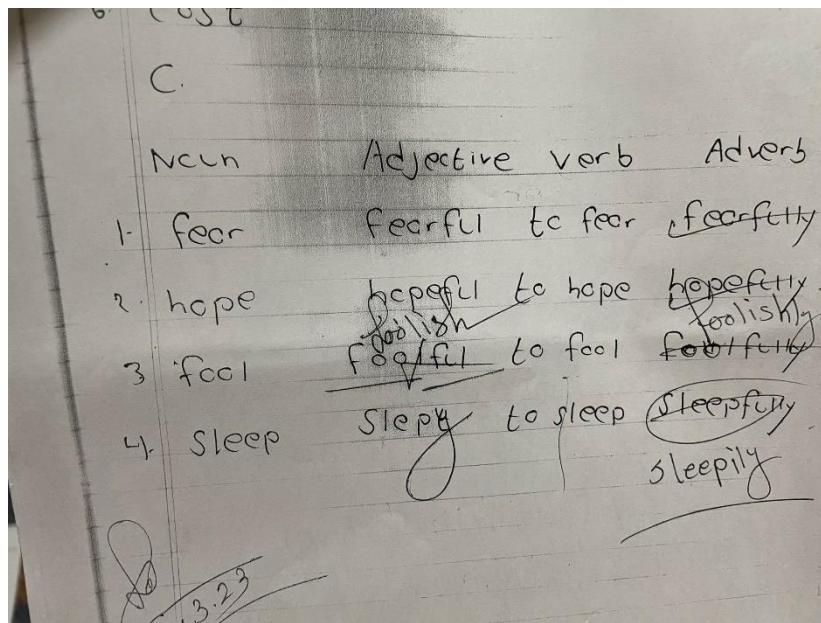 6. Cost
C.
Noun Adjective verb Adverb
1- fear fearful to fear fearfully
2. hope hopeful to hope hopefully
foolish foolishly
3 fool foolful to fool foolfully
4. sleep slepy to sleep sleepfully
sleepily
.3.23